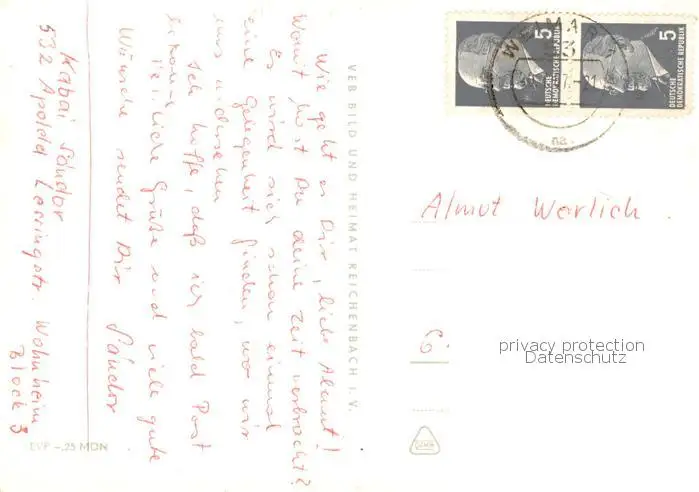 Wie geht es Dir, liebe Almut!
Womit hast Du deine Zeit verbracht?
Es wird sich schon einmal
eine Gelegenheit finden, wo wir
uns wiedersehen
Ich hoffe, daß ich bald Post
bekomme
Herzliche Grüße und viele gute
Wünsche sendet Dir Sándor
Kabai Sándor
532 Apolda Leninstr. Wohnheim
Block 3
VEB BILD UND HEIMAT REICHENBACH I. V.
EVP –,25 MDN
5
DEUTSCHE
DEMOKRATISCHE REPUBLIK
5
DEUTSCHE
DEMOKRATISCHE REPUBLIK
WEIMAR
na
Almut Warlich.
6
privacy protection
Datenschutz